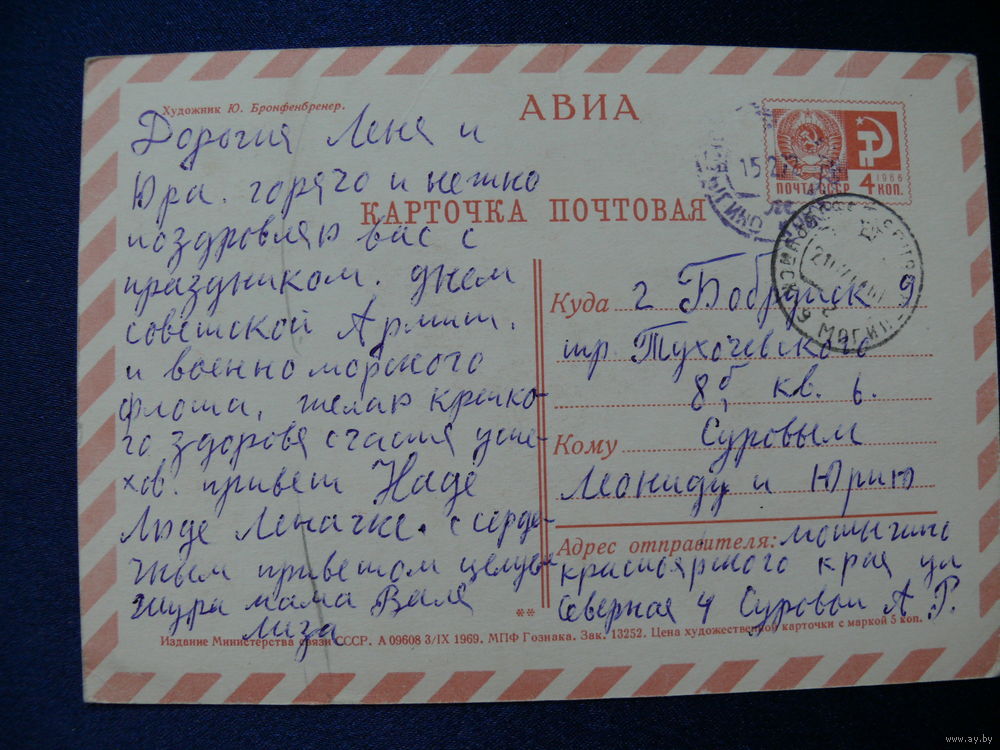 Художник Ю. Бронфенбренер.
АВИА
КАРТОЧКА ПОЧТОВАЯ
1966
ПОЧТА СССР 4 КОП.
Дорогия Леня и
Юра. горячо и нежно
поздровляю вас с
праздником. днем
советской Армии.
и военно морского
флота, желаю крепко-
го здоровя счастия успе-
хов. привет Наде
Люде Леначке. с серде-
чным приветом целую
мама Валя
Лиза
Куда г Бобруйск 9
Тухочевского
8б, кв. 6.
Кому Суровым
Леониду и Юрию
Адрес отправителя: мотыгино
красноярского края ул
Северная 4 Суровой А. Р.
**
Издание Министерства связи СССР. А 09608 3/IX 1969. МПФ Гознака. Зак. 13252. Цена художественной карточки с маркой 5 коп.
www.ay.by